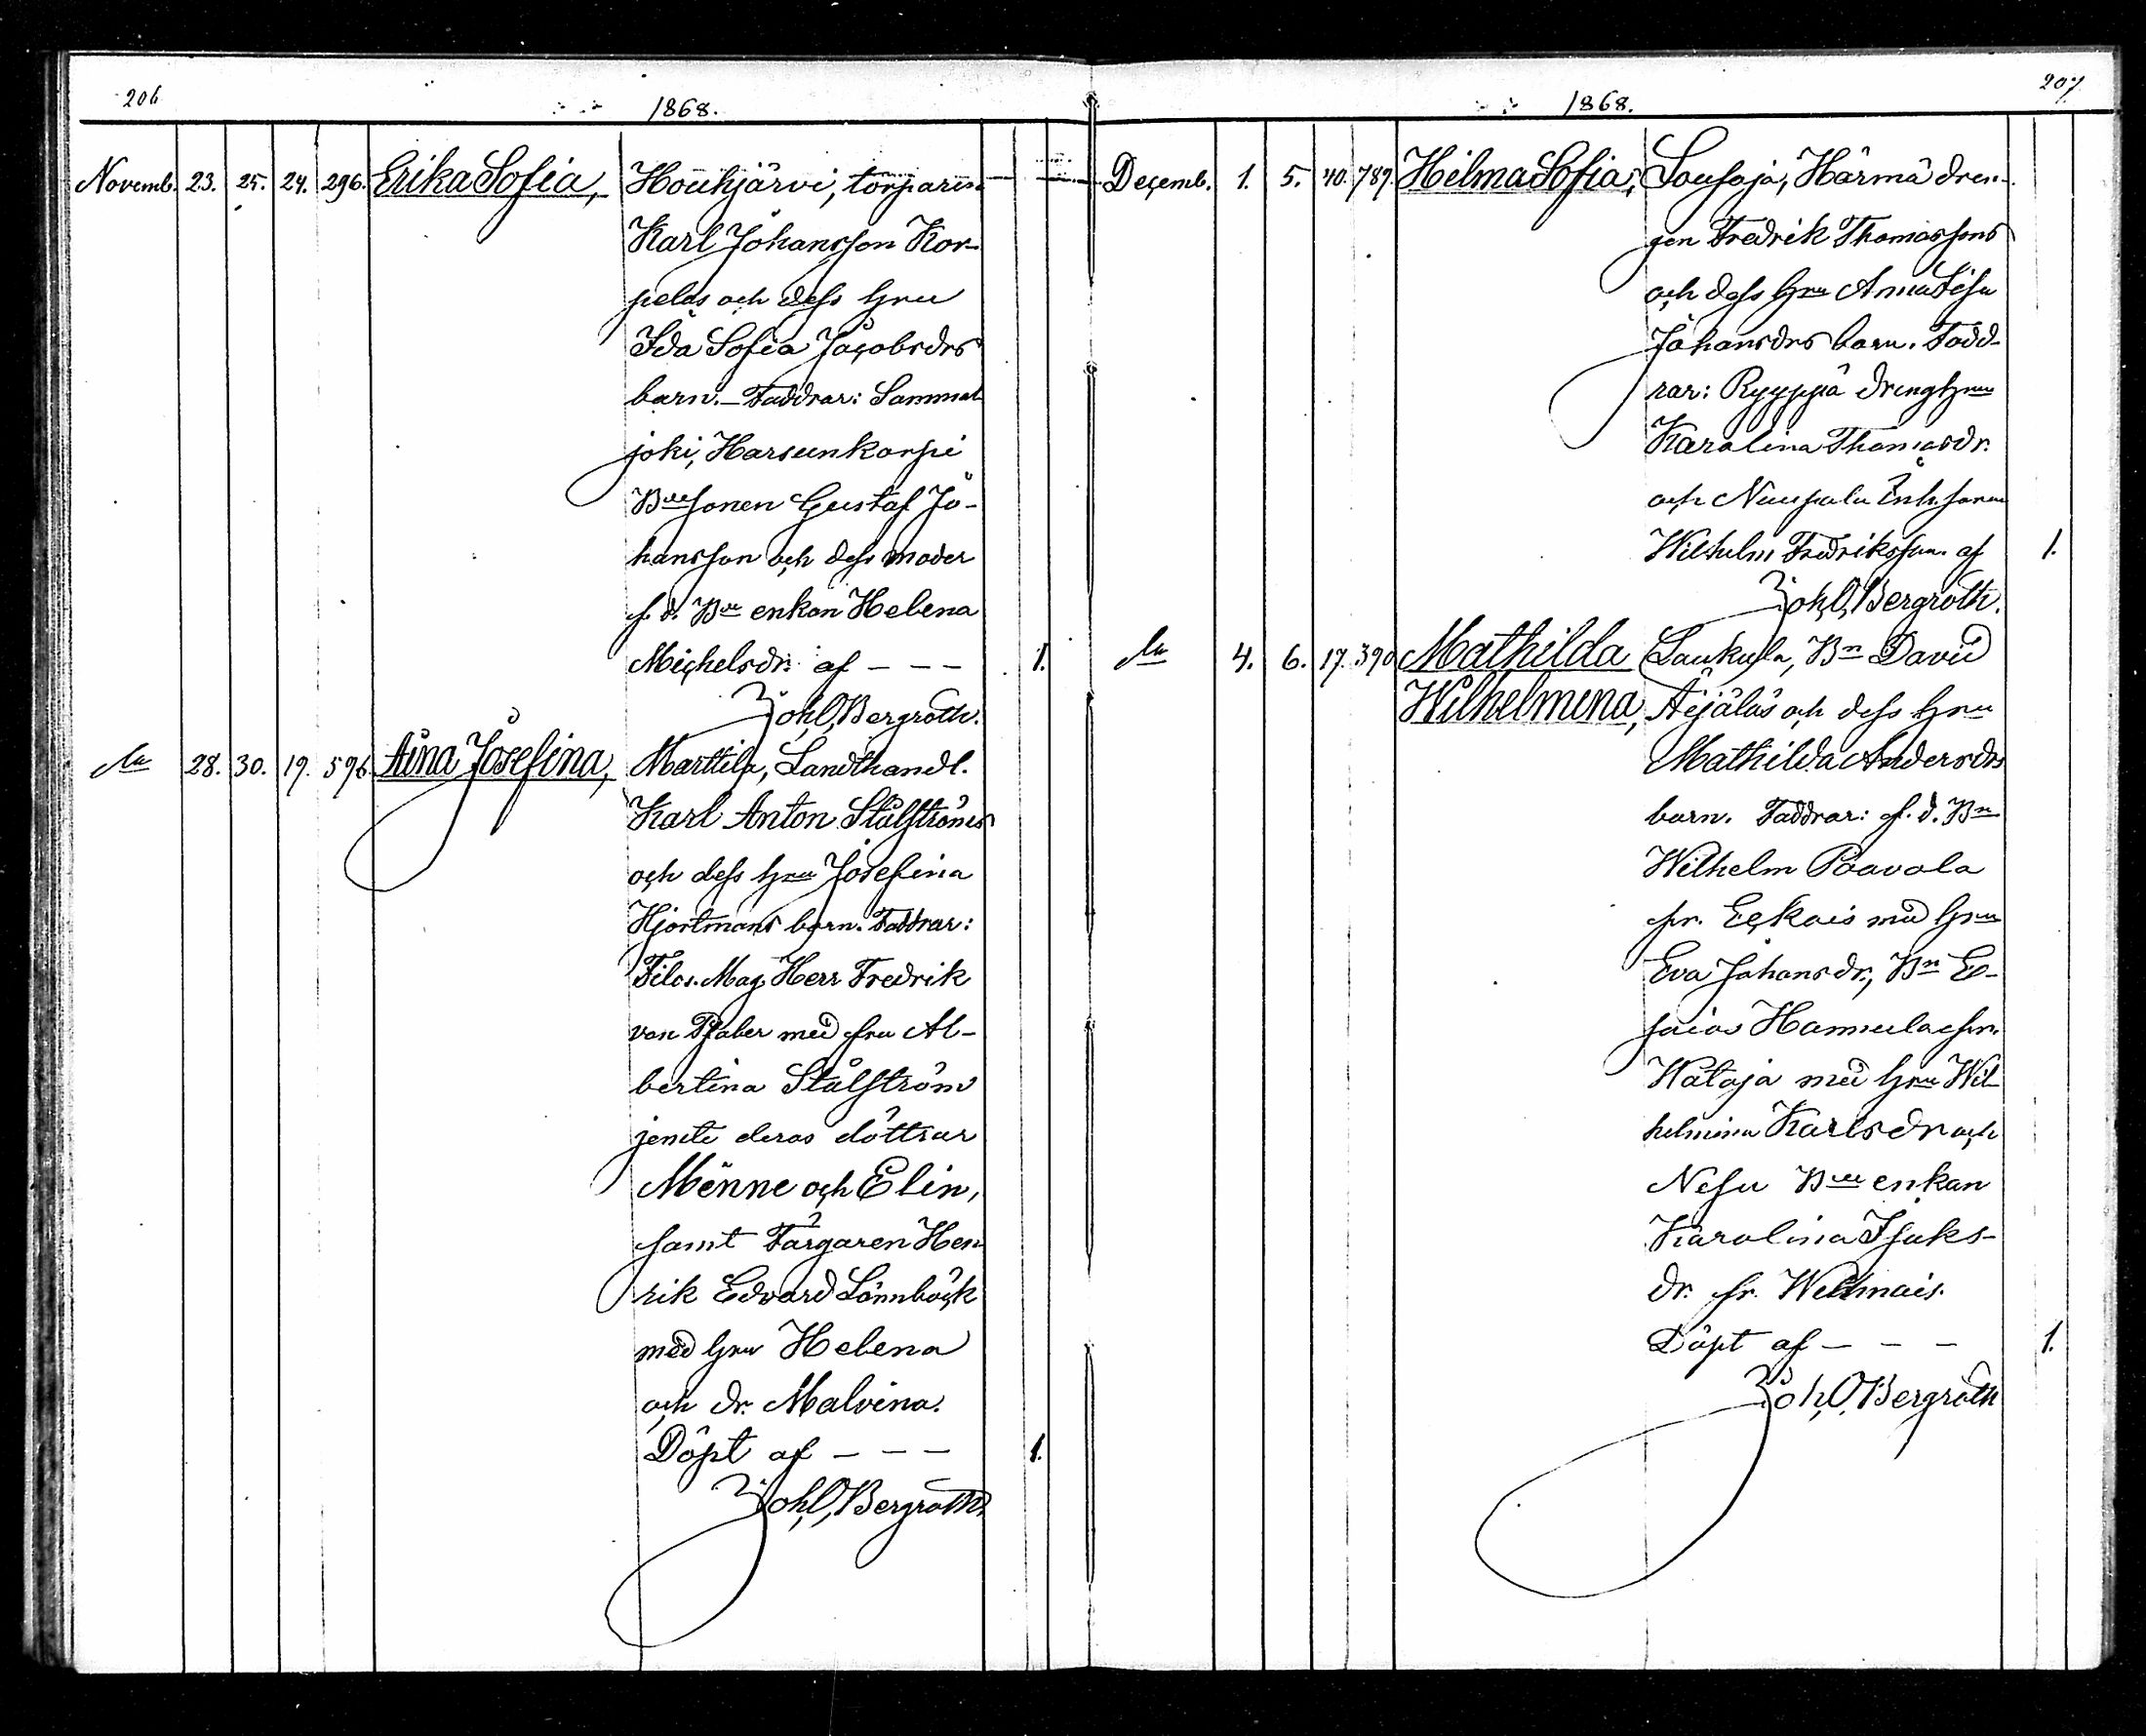 206
1868.
Novemb. 23. 25. 24. 296. Erika Sofia, Houhjärvi, torparen
Karl Johansson Kor-
pelas och dess hru
Ida Sofia Jacobsdrs
barn. – Faddrar: Sammal
joki, Harsunkorpi
Bdesonen Gustaf Jo-
hansson och dess moder
f. d. Bde enkan Helena
Michelsdr. af – – – 1.
Joh. O. Bergroth.
28. 30. 19. 596. Aina Josefina, Marttila, Landthandl.
Karl Anton Stålströms
och dess hru Josefina
Hjortmans barn. Faddrar:
Filos. Mag. Herr Fredrik
von Pfaler med fru Al-
bertina Stålström
jemte deras döttrar
Minne och Elin,
samt Färgaren Hen
rik Edvard Lönnbäck
med hru Helena
och dr. Malvina.
Döpt af – – – 1.
Joh. O. Bergroth.
207
1868.
Decemb. 1. 5. 40. 789. Hilma Sofia, Härmä dren-
gen Fredrik Thomassons
och dess hru Anna Lisa
Johansdrs barn. Fadd-
rar: Ryyppä drenghru
Karolina Thomasdr.
och Nuupala Inh. sonen
Wilhelm Fredriksson. af 1.
Joh. O. Bergroth.
4. 6. 17. 390 Mathilda Laukula, Bn David
Wilhelmina, Äijäläs och dess hru
Mathilda Andersdrs
barn. Faddrar: f. d. Bn
Wilhelm Paavola
fr. Eckois med hru
Eva Johansdr., Bn Es-
saias Hannula fr.
Kataja med hru Wil
helmina Karlsdr och
Bde enkan
Karolina Isaks-
dr. fr.
Döpt af – – – 1.
Joh. O. Bergroth